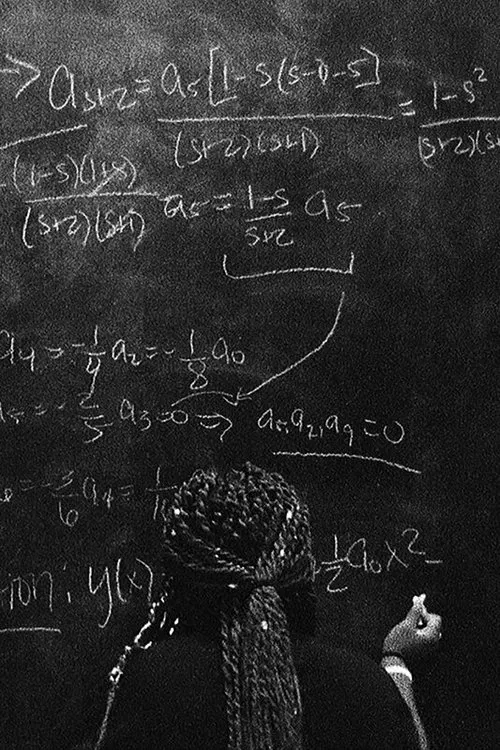 → a_{s+2} = a_s[1-s(s-1)-s] / (s+2)(s+1) = 1-s² / (s+2)(s+
(1-s)(1+s) / (s+2)(s+1) a_s = 1-s / s+2 a_s
a₄ = -1/4 a₂ = -1/8 a₀
= -2/5 a₃ = 0 ⇒ a₅, a₇, a₉ = 0
= -3/6 a₄ = 1/1
ion: y(x) 1/2 a₀x² -